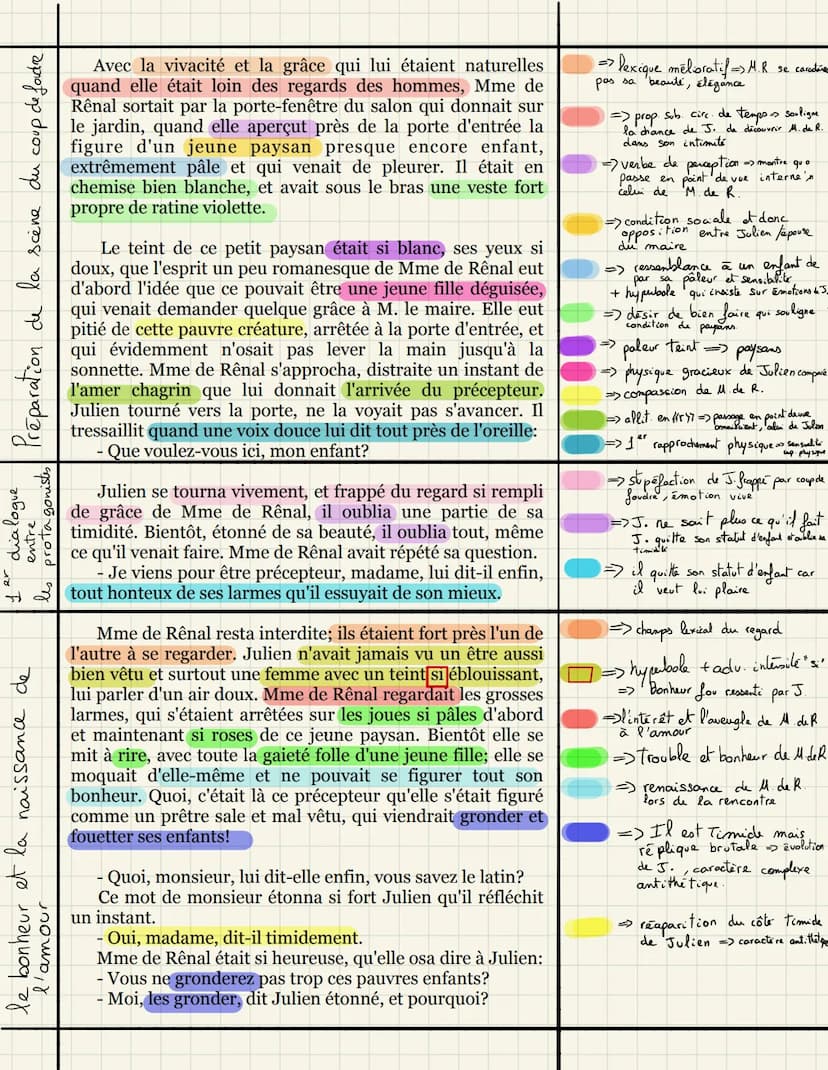 Préparation de la scène du coup de foudre
Avec la vivacité et la grâce qui lui étaient naturelles
quand elle était loin des regards des hommes, Mme de
Rênal sortait par la porte-fenêtre du salon qui donnait sur
le jardin, quand elle aperçut près de la porte d'entrée la
figure d'un jeune paysan presque encore enfant,
extrêmement pâle et qui venait de pleurer. Il était en
chemise bien blanche, et avait sous le bras une veste fort
propre de ratine violette.
Le teint de ce petit paysan était si blanc, ses yeux si
doux, que l'esprit un peu romanesque de Mme de Rênal eut
d'abord l'idée que ce pouvait être une jeune fille déguisée,
qui venait demander quelque grâce à M. le maire. Elle eut
pitié de cette pauvre créature, arrêtée à la porte d'entrée, et
qui évidemment n'osait pas lever la main jusqu'à la
sonnette. Mme de Rênal s'approcha, distraite un instant de
l'amer chagrin que lui donnait l'arrivée du précepteur.
Julien tourné vers la porte, ne la voyait pas s'avancer. Il
tressaillit quand une voix douce lui dit tout près de l'oreille:
- Que voulez-vous ici, mon enfant?
=> lexique mélioratif => M.R se caractérise
pas sa beauté, élégance
=> prop. sub. circ. de temps => souligne
la chance de J. de découvrir M. de R.
dans son intimité
=> verbe de perception => montre qu
passe en point de vue interne
celui de M. de R.
=> condition sociale et donc
opposition entre Julien / épouse
du maire
=> ressemblance à un enfant de
par sa pâleur et sensibilité
+ hyperbole qui insiste sur émotions de J.
=> désir de bien faire qui souligne
condition de paysans.
=> paleur teint => paysans
=> physique gracieux de Julien comparé
=> compassion de M. de R.
=> allit. en (r) => passage en point de vue
omniscient, celui de Julien
=> 1er rapprochement physique => sensualité
physique
1er dialogue
entre
les protagonists
Julien se tourna vivement, et frappé du regard si rempli
de grâce de Mme de Rênal, il oublia une partie de sa
timidité. Bientôt, étonné de sa beauté, il oublia tout, même
ce qu'il venait faire. Mme de Rênal avait répété sa question.
- Je viens pour être précepteur, madame, lui dit-il enfin,
tout honteux de ses larmes qu'il essuyait de son mieux.
=> stupéfaction de J. frappé par coup de
foudre, émotion vive
=> J. ne sait plus ce qu'il fait
J. quitte son statut d'enfant et oublie sa
timidité
=> il quitte son statut d'enfant car
il veut lui plaire
le bonheur et la naissance de
l'amour
Mme de Rênal resta interdite; ils étaient fort près l'un de
l'autre à se regarder. Julien n'avait jamais vu un être aussi
bien vêtu et surtout une femme avec un teint si éblouissant,
lui parler d'un air doux. Mme de Rênal regardait les grosses
larmes, qui s'étaient arrêtées sur les joues si pâles d'abord
et maintenant si roses de ce jeune paysan. Bientôt elle se
mit à rire, avec toute la gaieté folle d'une jeune fille; elle se
moquait d'elle-même et ne pouvait se figurer tout son
bonheur. Quoi, c'était là ce précepteur qu'elle s'était figuré
comme un prêtre sale et mal vêtu, qui viendrait gronder et
fouetter ses enfants!
- Quoi, monsieur, lui dit-elle enfin, vous savez le latin?
Ce mot de monsieur étonna si fort Julien qu'il réfléchit
un instant.
- Oui, madame, dit-il timidement.
Mme de Rênal était si heureuse, qu'elle osa dire à Julien:
- Vous ne gronderez pas trop ces pauvres enfants?
- Moi, les gronder, dit Julien étonné, et pourquoi?
=> champs lexical du regard
=> hyperbole + adv. intensité "si"
=> bonheur fou ressenti par J.
=> l'intérêt et l'aveugle de M. de R
à l'amour
=> Trouble et bonheur de M. de R
=> renaissance de M. de R.
lors de la rencontre
=> Il est timide mais
réplique brutale => évolution
de J., caractère complexe
antithétique.
=> réaparition du côté timide
de Julien => caractère ant.thétique